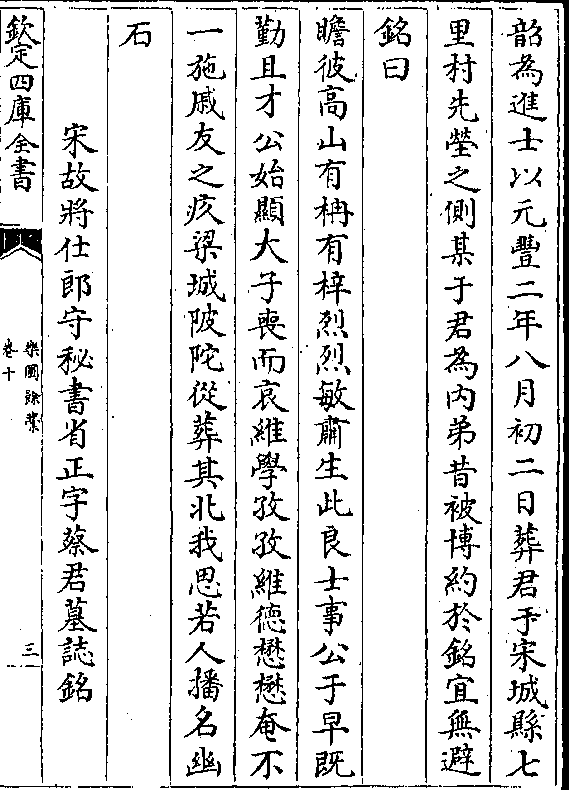 韶為進士以元豐二年八月初二日葬君于宋城縣七
里村先塋之側某于君為内弟昔被博約於銘宜無避
銘曰
瞻彼高山有柟有梓烈烈敏肅生此良士事公于早既
勤且才公始顯大子喪而哀維學孜孜維德懋懋奄不
一施戚友之疚梁城陂陀從葬其北我思若人播名幽
石
宋故將仕郎守秘書省正字蔡君墓誌銘
欽定四庫全書
樂圃餘藁
卷十
三